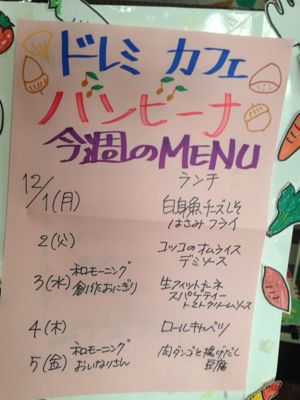 ドレミ カフェ
バンビーナ
今週のMENU
ランチ
12/1(月) 白身魚チーズしそ
はさみフライ
2(火) コッコのオムライス
デミソース
3(水) 和モーニング
創作おにぎり
生フィットチーネ
スパゲティー
トマトクリームソース
4(木) ロールキャベツ
5(金) 和モーニング
おいなりさん
肉ダンゴと揚げだし
豆腐